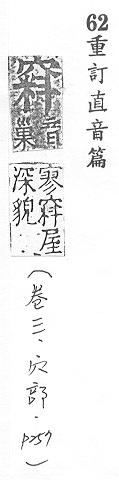 62 重訂直音篇
音巢
寥 屋
深貌
(卷三·穴部·p257)